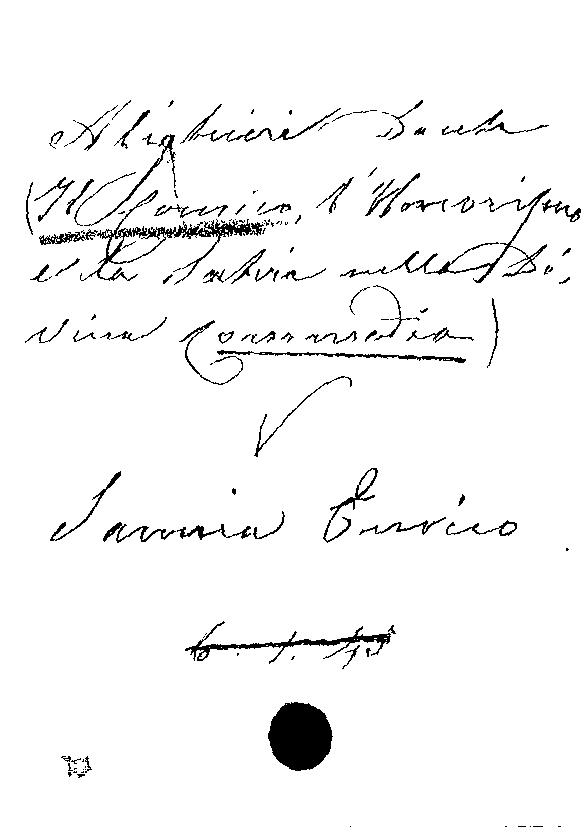 Alighieri Dante
(Il Comico, l'Umorismo
e la Satira nella Di,
vina Commedia)
Sannia Enrico
6. 1. 45